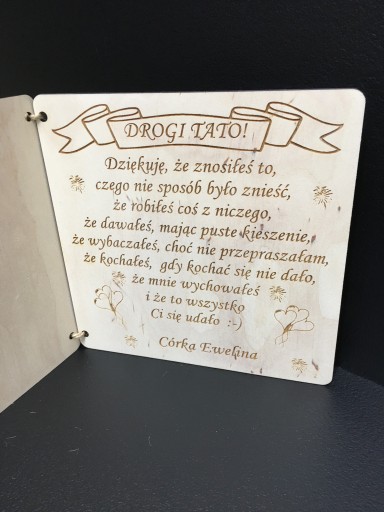 DROGI TATO!
Dziękuję, że znosiłeś to,
czego nie sposób było znieść,
że robiłeś coś z niczego,
że dawałeś, mając puste kieszenie,
że wybaczałeś, choć nie przepraszałam,
że kochałeś, gdy kochać się nie dało,
że mnie wychowałeś
i że to wszystko
Ci się udało :-)
Córka Ewelina